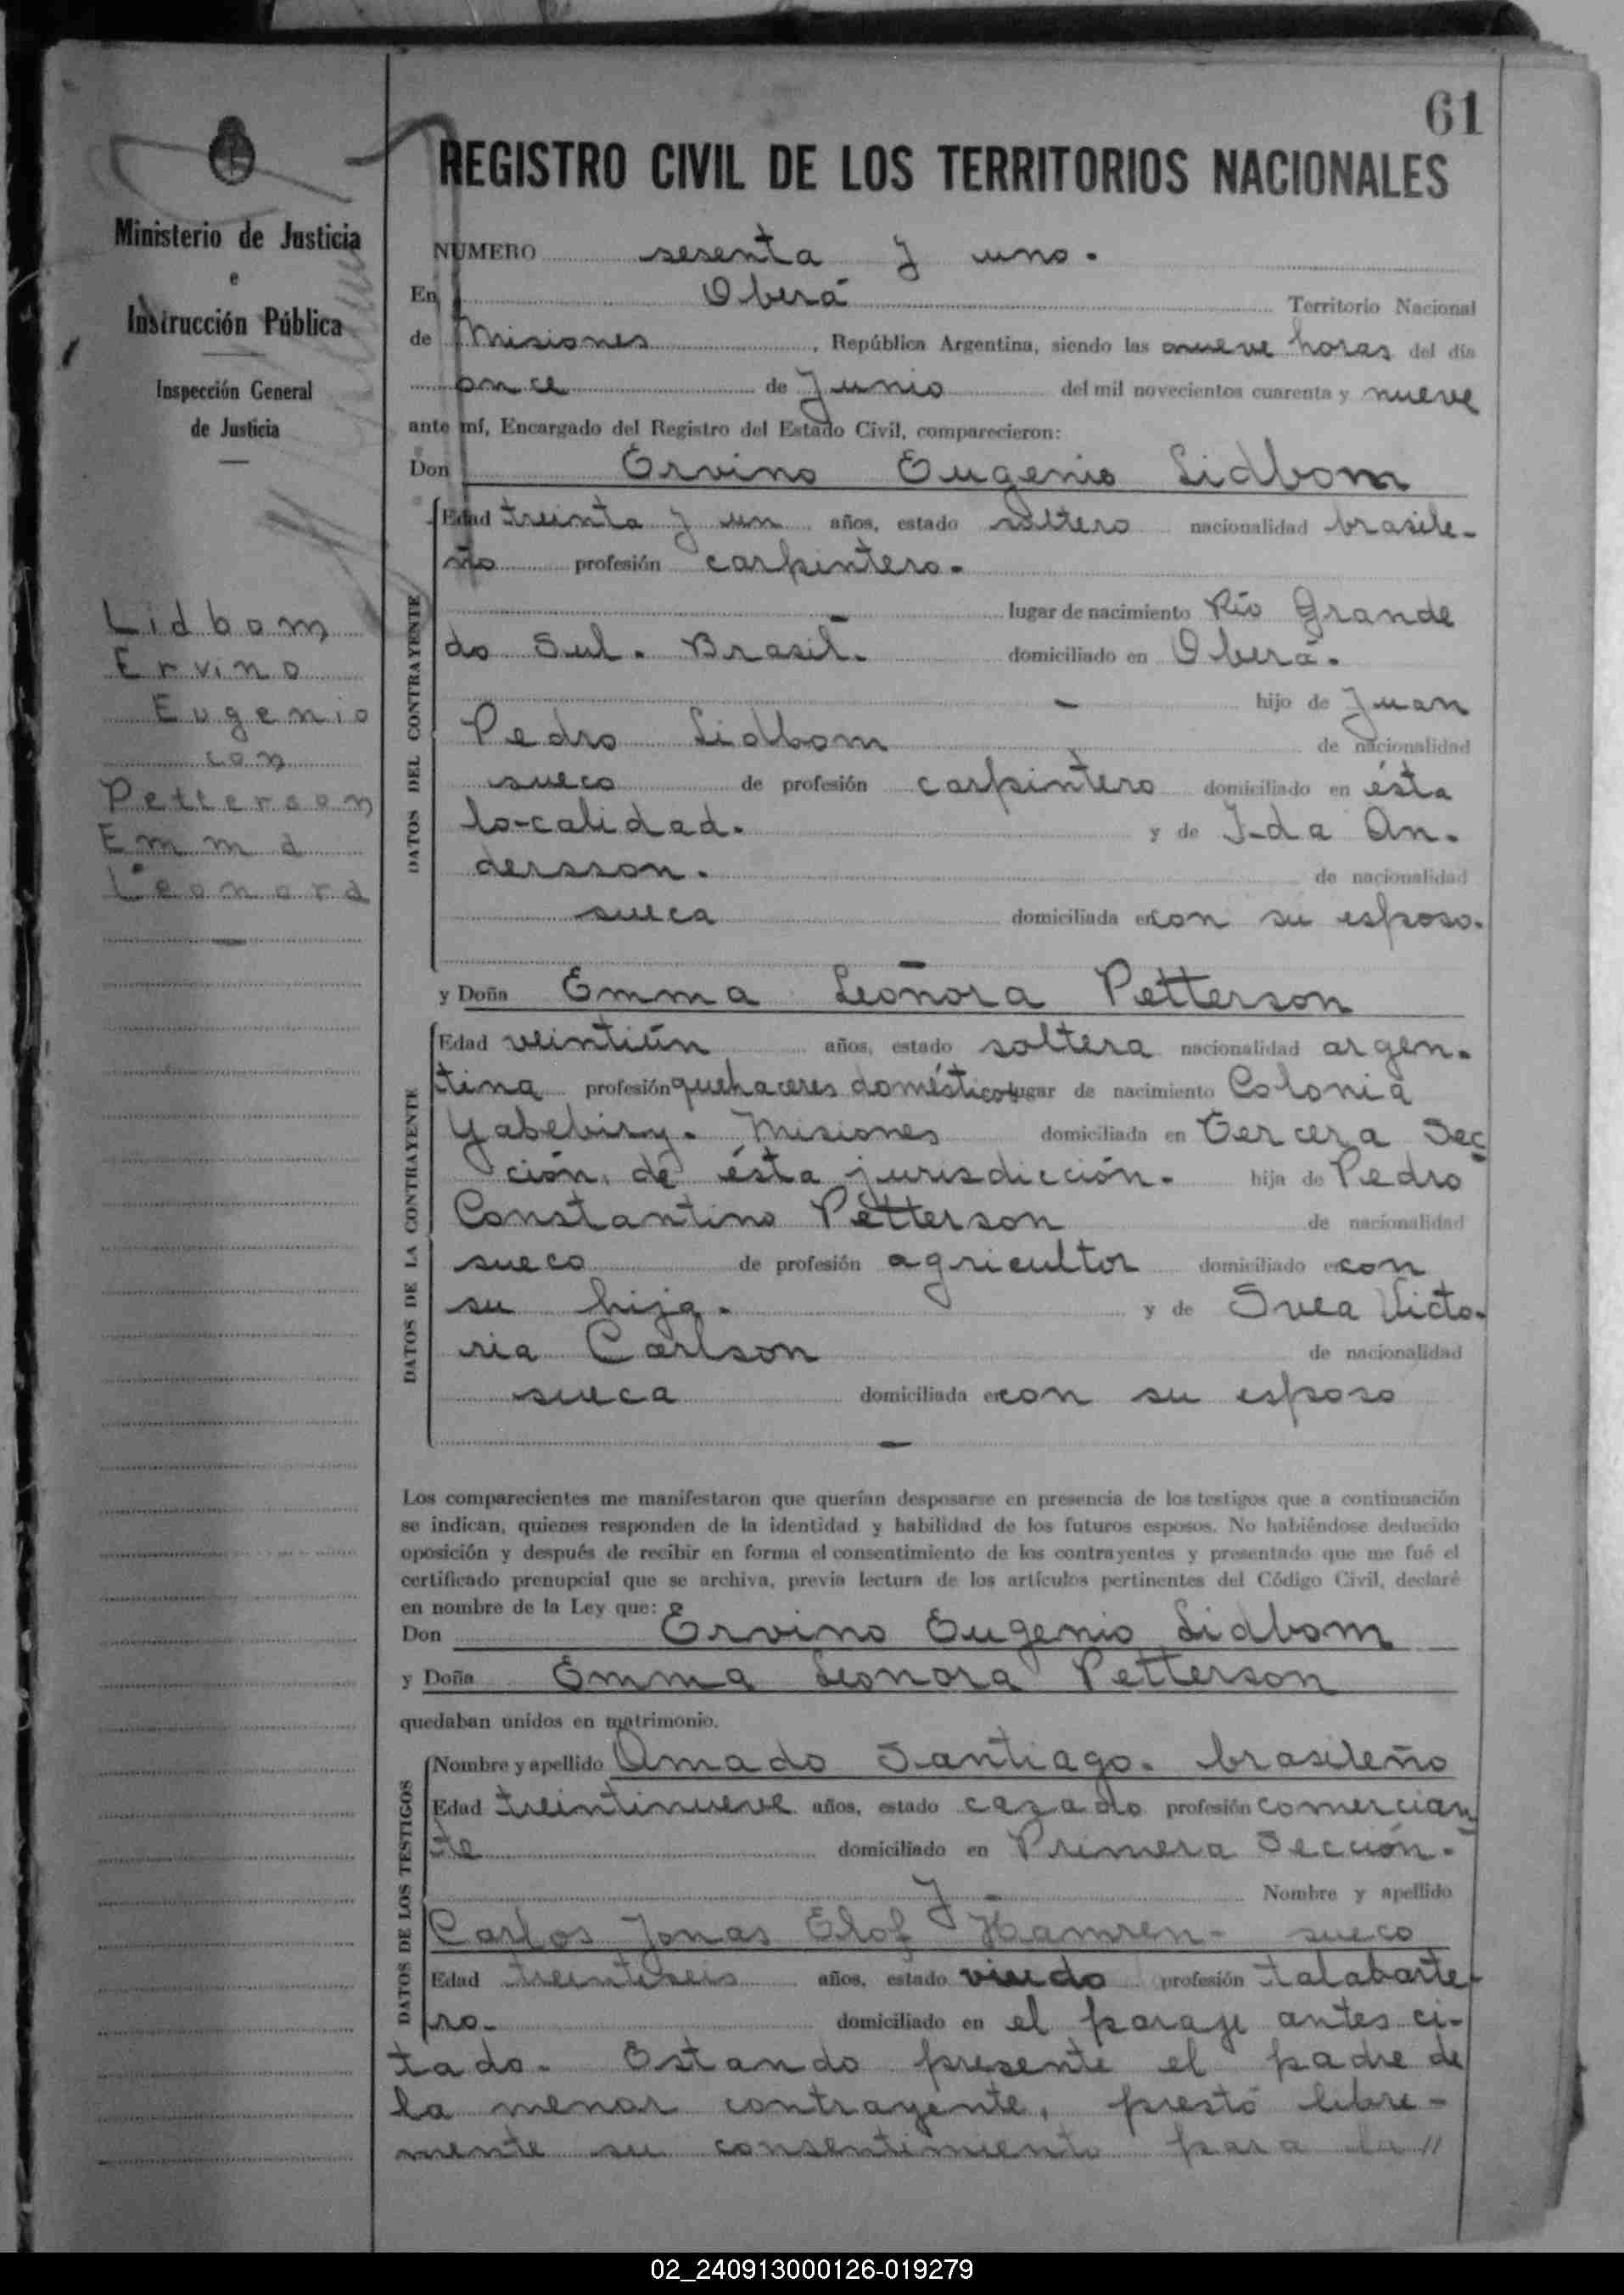 61
REGISTRO CIVIL DE LOS TERRITORIOS NACIONALES
Ministerio de Justicia
e
Instrucción Pública
Inspección General
de Justicia
Lidbom
Ervino
Eugenio
con
Petterson
Emma
Leonora
NUMERO sesenta y uno.
En Oberá Territorio Nacional
de Misiones, República Argentina, siendo las nueve horas del día
once de Junio del mil novecientos cuarenta y nueve
ante mí, Encargado del Registro del Estado Civil, comparecieron:
Don Ervino Eugenio Lidbom
DATOS DEL CONTRAYENTE
Edad treinta y un años, estado soltero nacionalidad brasile-
ño profesión carpintero.
lugar de nacimiento Río Grande
do Sul. Brasil. domiciliado en Oberá.
hijo de Juan
Pedro Lidbom de nacionalidad
sueco de profesión carpintero domiciliado en ésta
lo-calidad. y de I-da An.
dersson. de nacionalidad
sueca domiciliada en con su esposo.
y Doña Emma Leonora Petterson
DATOS DE LA CONTRAYENTE
Edad veintiún años, estado soltera nacionalidad argen.
tina profesión quehaceres domésticos lugar de nacimiento Colonia
Yabebiry. Misiones domiciliada en Tercera Sec
ción de ésta jurisdicción. hija de Pedro
Constantino Petterson de nacionalidad
sueco de profesión agricultor domiciliado en con
su hija. y de Svea Victo.
ria Carlson de nacionalidad
sueca domiciliada en con su esposo
Los comparecientes me manifestaron que querían desposarse en presencia de los testigos que a continuación
se indican, quienes responden de la identidad y habilidad de los futuros esposos. No habiéndose deducido
oposición y después de recibir en forma el consentimiento de los contrayentes y presentado que me fué el
certificado prenupcial que se archiva, previa lectura de los artículos pertinentes del Código Civil, declaré
en nombre de la Ley que:
Don Ervino Eugenio Lidbom
y Doña Emma Leonora Petterson
quedaban unidos en matrimonio.
DATOS DE LOS TESTIGOS
Nombre y apellido Amado Santiago. brasileño
Edad treintinueve años, estado cazado profesión comercian
te domiciliado en Primera Sección.
y Nombre y apellido
Carlos Jonas Elof Hamren- sueco
Edad treintiseis años, estado viudo profesión talabarte-
ro. domiciliado en el paraje antes ci-
tado. Estando presente el padre de
la menor contrayente, prestó libre-
mente su consentimiento para la //
02_240913000126-019279